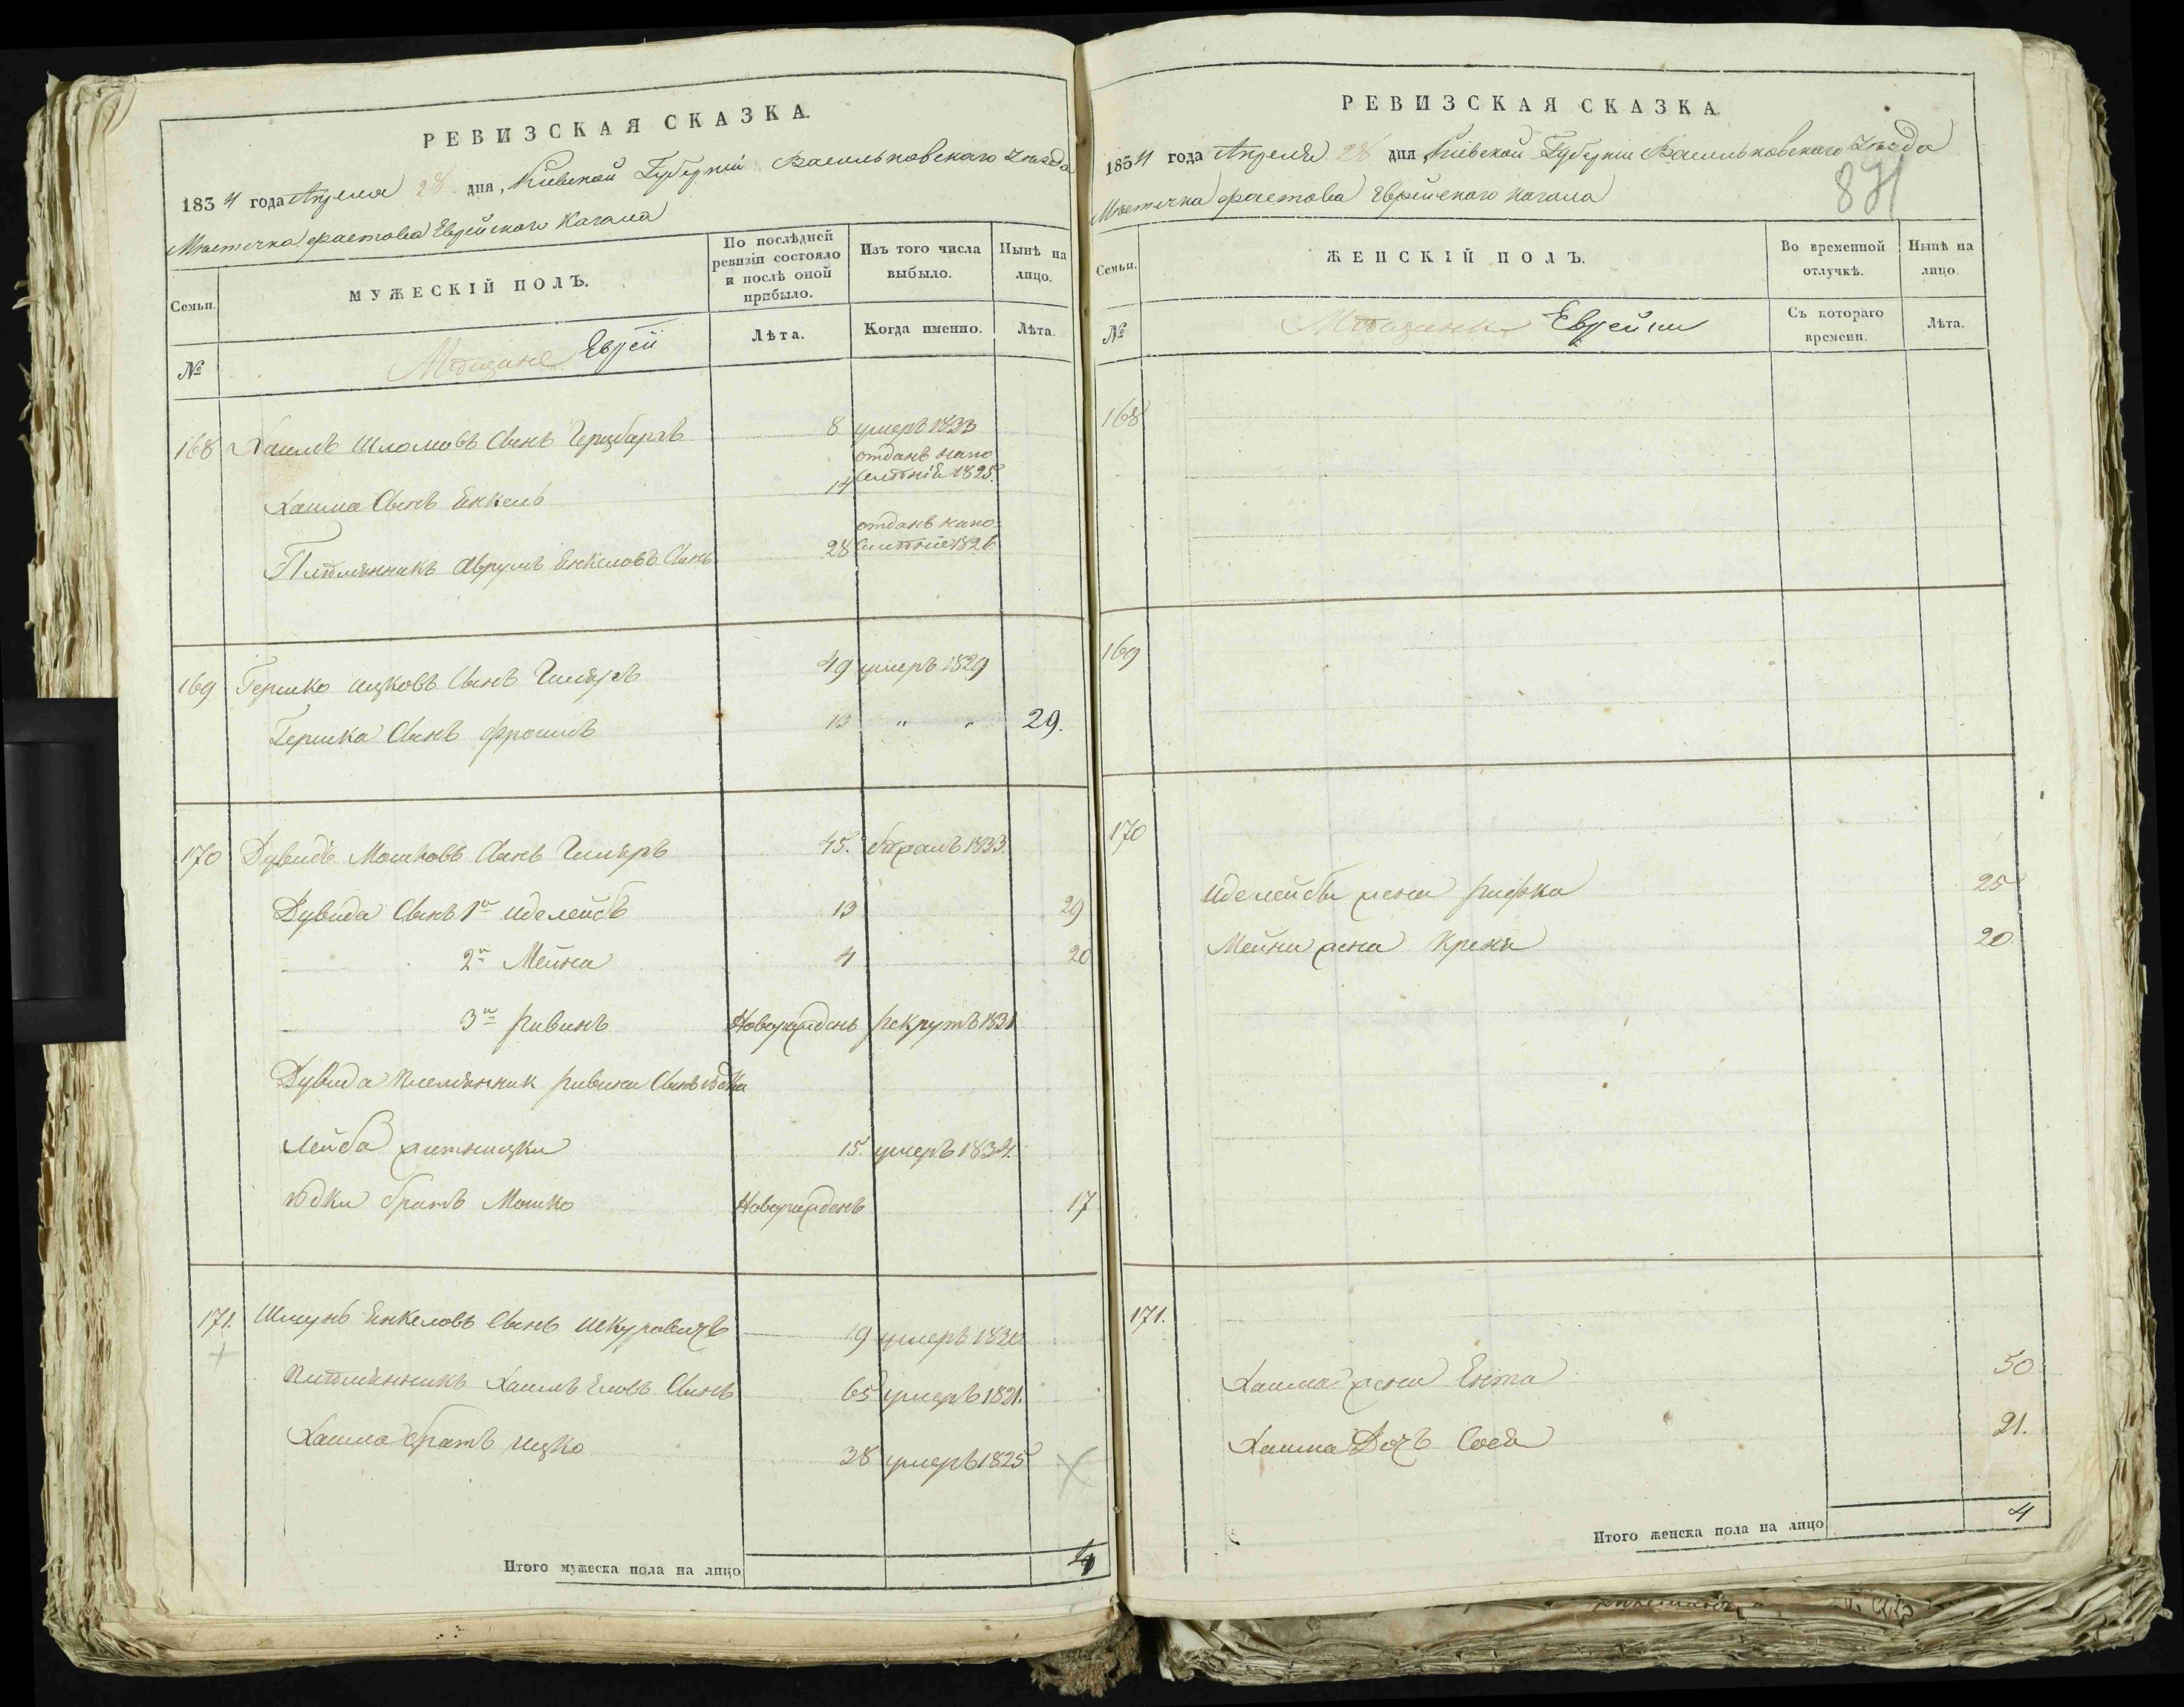 РЕВИЗСКАЯ СКАЗКА.
1834 года Апреля 28 дня, Киевской Губернии Васильковскаго Уезда
Местечка Фастова Еврейскаго Кагала
Семьи.
МУЖЕСКІЙ ПОЛЪ.
По послѣдней ревизіи состояло и послѣ оной прибыло.
Изъ того числа выбыло.
Нынѣ на лицо.
№
Мѣщане Еврей
Лѣта.
Когда именно.
Лѣта.
168 Хаимъ Шломовъ Сынъ 8 умеръ 1833
Хаима Сынъ Енкель 14 отданъ на по
селѣніе 1825.
Плѣмянникъ Аврумъ Енкеловъ Сынъ 28 отданъ на по=
селѣніе 1826
169 Гершко Ицковъ Сынъ 49 умеръ 1829
Гершка Сынъ Фроимъ 13 " " 29.
170 Дувидъ Мошковъ Сынъ 45. 1833.
Дувида Сынъ 1й Иделейбъ 13 29
2й Мейна 4 20
3й Ривинъ Новорожденъ рекрутъ 1831
Дувида племянник Ривина Сынъ Юдка
Лейба 15. умеръ 1834.
Юдки братъ Мошко Новорожденъ 17
171. Шмунь Енкеловъ Сынъ 9 умеръ 1820.
Плѣмянникъ Хаимъ Еловъ Сынъ 65 умеръ 1821.
Хаима братъ Ицко 38 умеръ 1825
Итого мужеска пола на лицо 4
РЕВИЗСКАЯ СКАЗКА.
1834 года Апреля 28 дня, Киевской Губернии Васильковскаго Уезда
Местечка Фастова Еврейскаго Кагала
871
Семьи.
ЖЕНСКІЙ ПОЛЪ.
Во временной отлучкѣ.
Нынѣ на лицо.
№
Мѣщанки Еврейки
Съ котораго времени.
Лѣта.
168
169
170
Иделейбы жена Рифка 25
Мейни жена Крейна 20
171.
Хаима жена Ента 50
Хаима Дочъ Сося 21.
Итого женска пола на лицо 4